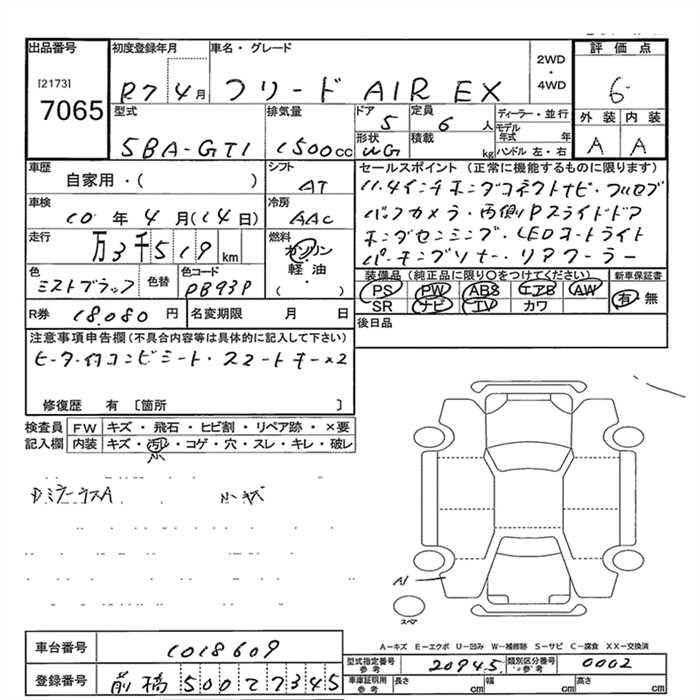 出品番号 初度登録年月 車名・グレード 2WD ・ 4WD 評価点
[2173] 7065 R7 4月 フリード AIR EX 6
型式 排気量 ドア 定員 ディーラー・並行 外装 内装
5BA-GT1 1500cc 5 6人 モデル年式 年 A A
形状 WG 積載 kg ハンドル 左・右
車歴 自家用・( ) シフト AT セールスポイント (正常に機能するものに限ります)
車検 10年4月(14日) 冷房 AAC 11.4インチホンダコネクトナビ・フルセグ
バックカメラ・両側Pスライドドア
走行 万3千519km 燃料 ガソリン・軽油 ( ) ホンダセンシング・LEDオートライト
パーキングソナー・リアクーラー
色 ミストブラック 色替 色コード PB93P
装備品 (純正品に限り○をつけてください) 新車保証書
PS PW ABS エアB AW 有・無
SR ナビ TV カワ
R券 18,080円 名変期限 月 日 後日品
注意事項申告欄(不具合内容等は具体的に記入して下さい)
ヒーター付コンビシート・スマートキー×2
修復歴 有 [箇所 ]
検査員 FW キズ・飛石・ヒビ割・リペア跡・×要
記入欄 内装 キズ・汚レ・コゲ・穴・スレ・キレ・破レ
小
DミラーウスA 小キズ
A1
スペア
A-キズ E-エクボ U-凹み W-補修跡 S-サビ C-腐食 XX-交換済
車台番号 1018609
型式指定番号 参考 20945 類別区分番号 参考 0002
登録番号 前橋 500 7345
車庫証明用 参考 長さ cm 幅 cm 高さ cm